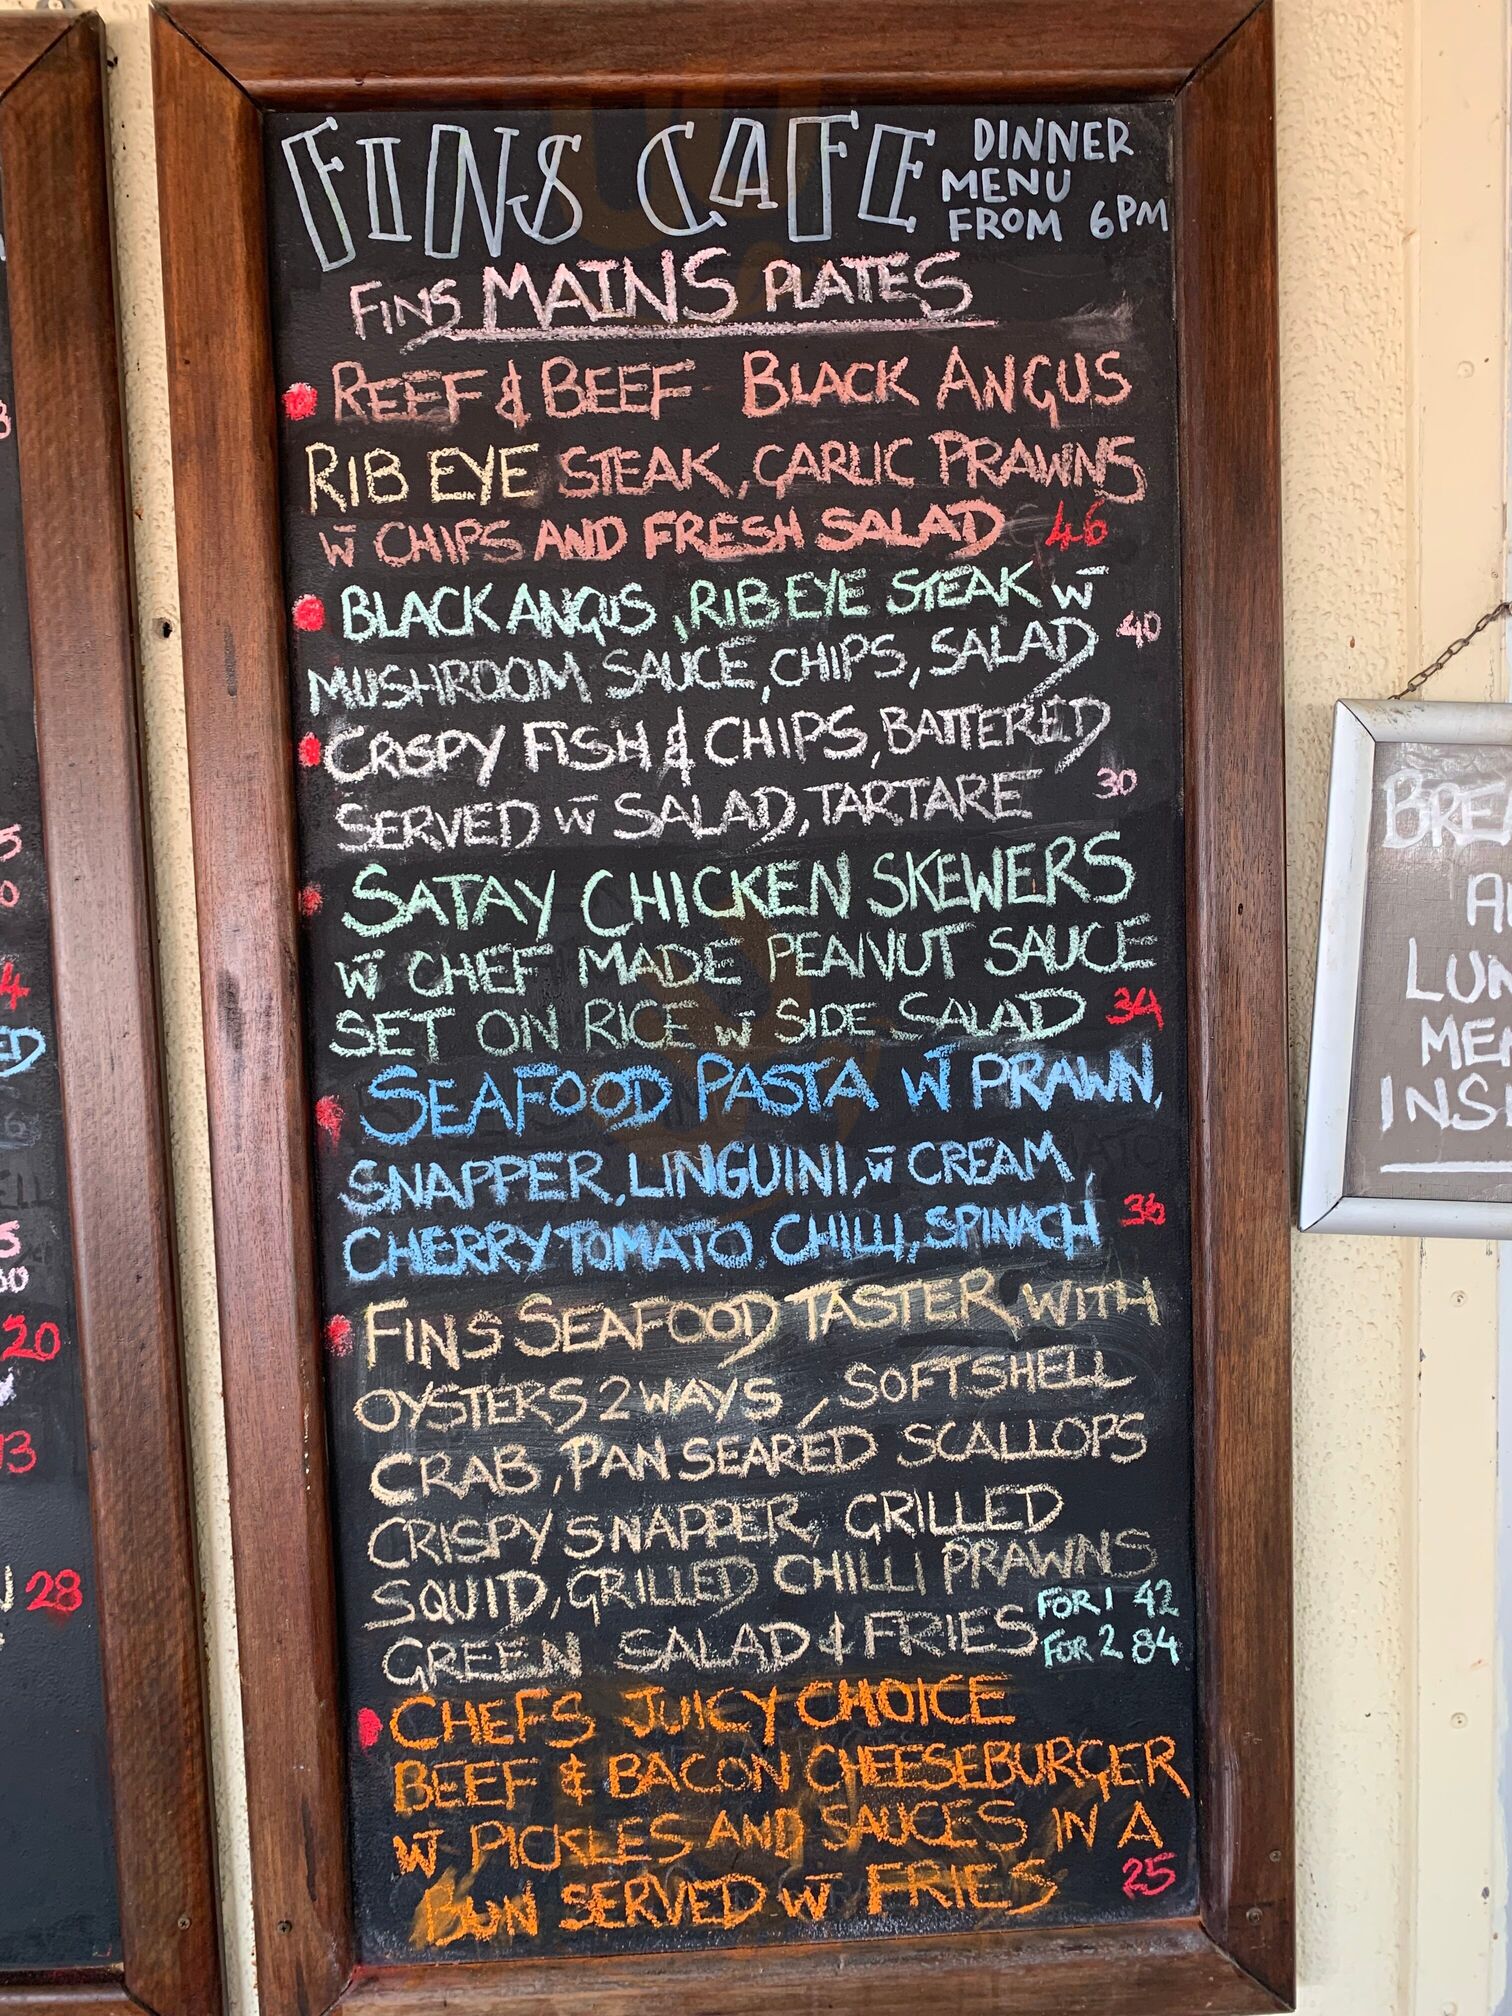 FINS CAFE DINNER
MENU
FROM 6PM
FINS MAINS PLATES
REEF & BEEF BLACK ANGUS
RIB EYE STEAK, GARLIC PRAWNS
W CHIPS AND FRESH SALAD 46
BLACK ANGUS, RIB EYE STEAK W
MUSHROOM SAUCE, CHIPS, SALAD 40
CRISPY FISH & CHIPS, BATTERED
SERVED W SALAD, TARTARE 30
SATAY CHICKEN SKEWERS
W CHEF MADE PEANUT SAUCE
SET ON RICE W SIDE SALAD 34
SEAFOOD PASTA W PRAWN,
SNAPPER, LINGUINI, W CREAM,
CHERRY TOMATO, CHILLI, SPINACH
FINS SEAFOOD TASTER WITH
OYSTERS 2 WAYS, SOFTSHELL
CRAB, PAN SEARED SCALLOPS
CRISPY SNAPPER, GRILLED
SQUID, GRILLED CHILLI PRAWNS
GREEN SALAD & FRIES FOR 1 42
FOR 2 84
CHEFS JUICY CHOICE
BEEF & BACON CHEESEBURGER
W PICKLES AND SAUCES IN A
BUN SERVED W FRIES 25
20
13
28
LUN
INS